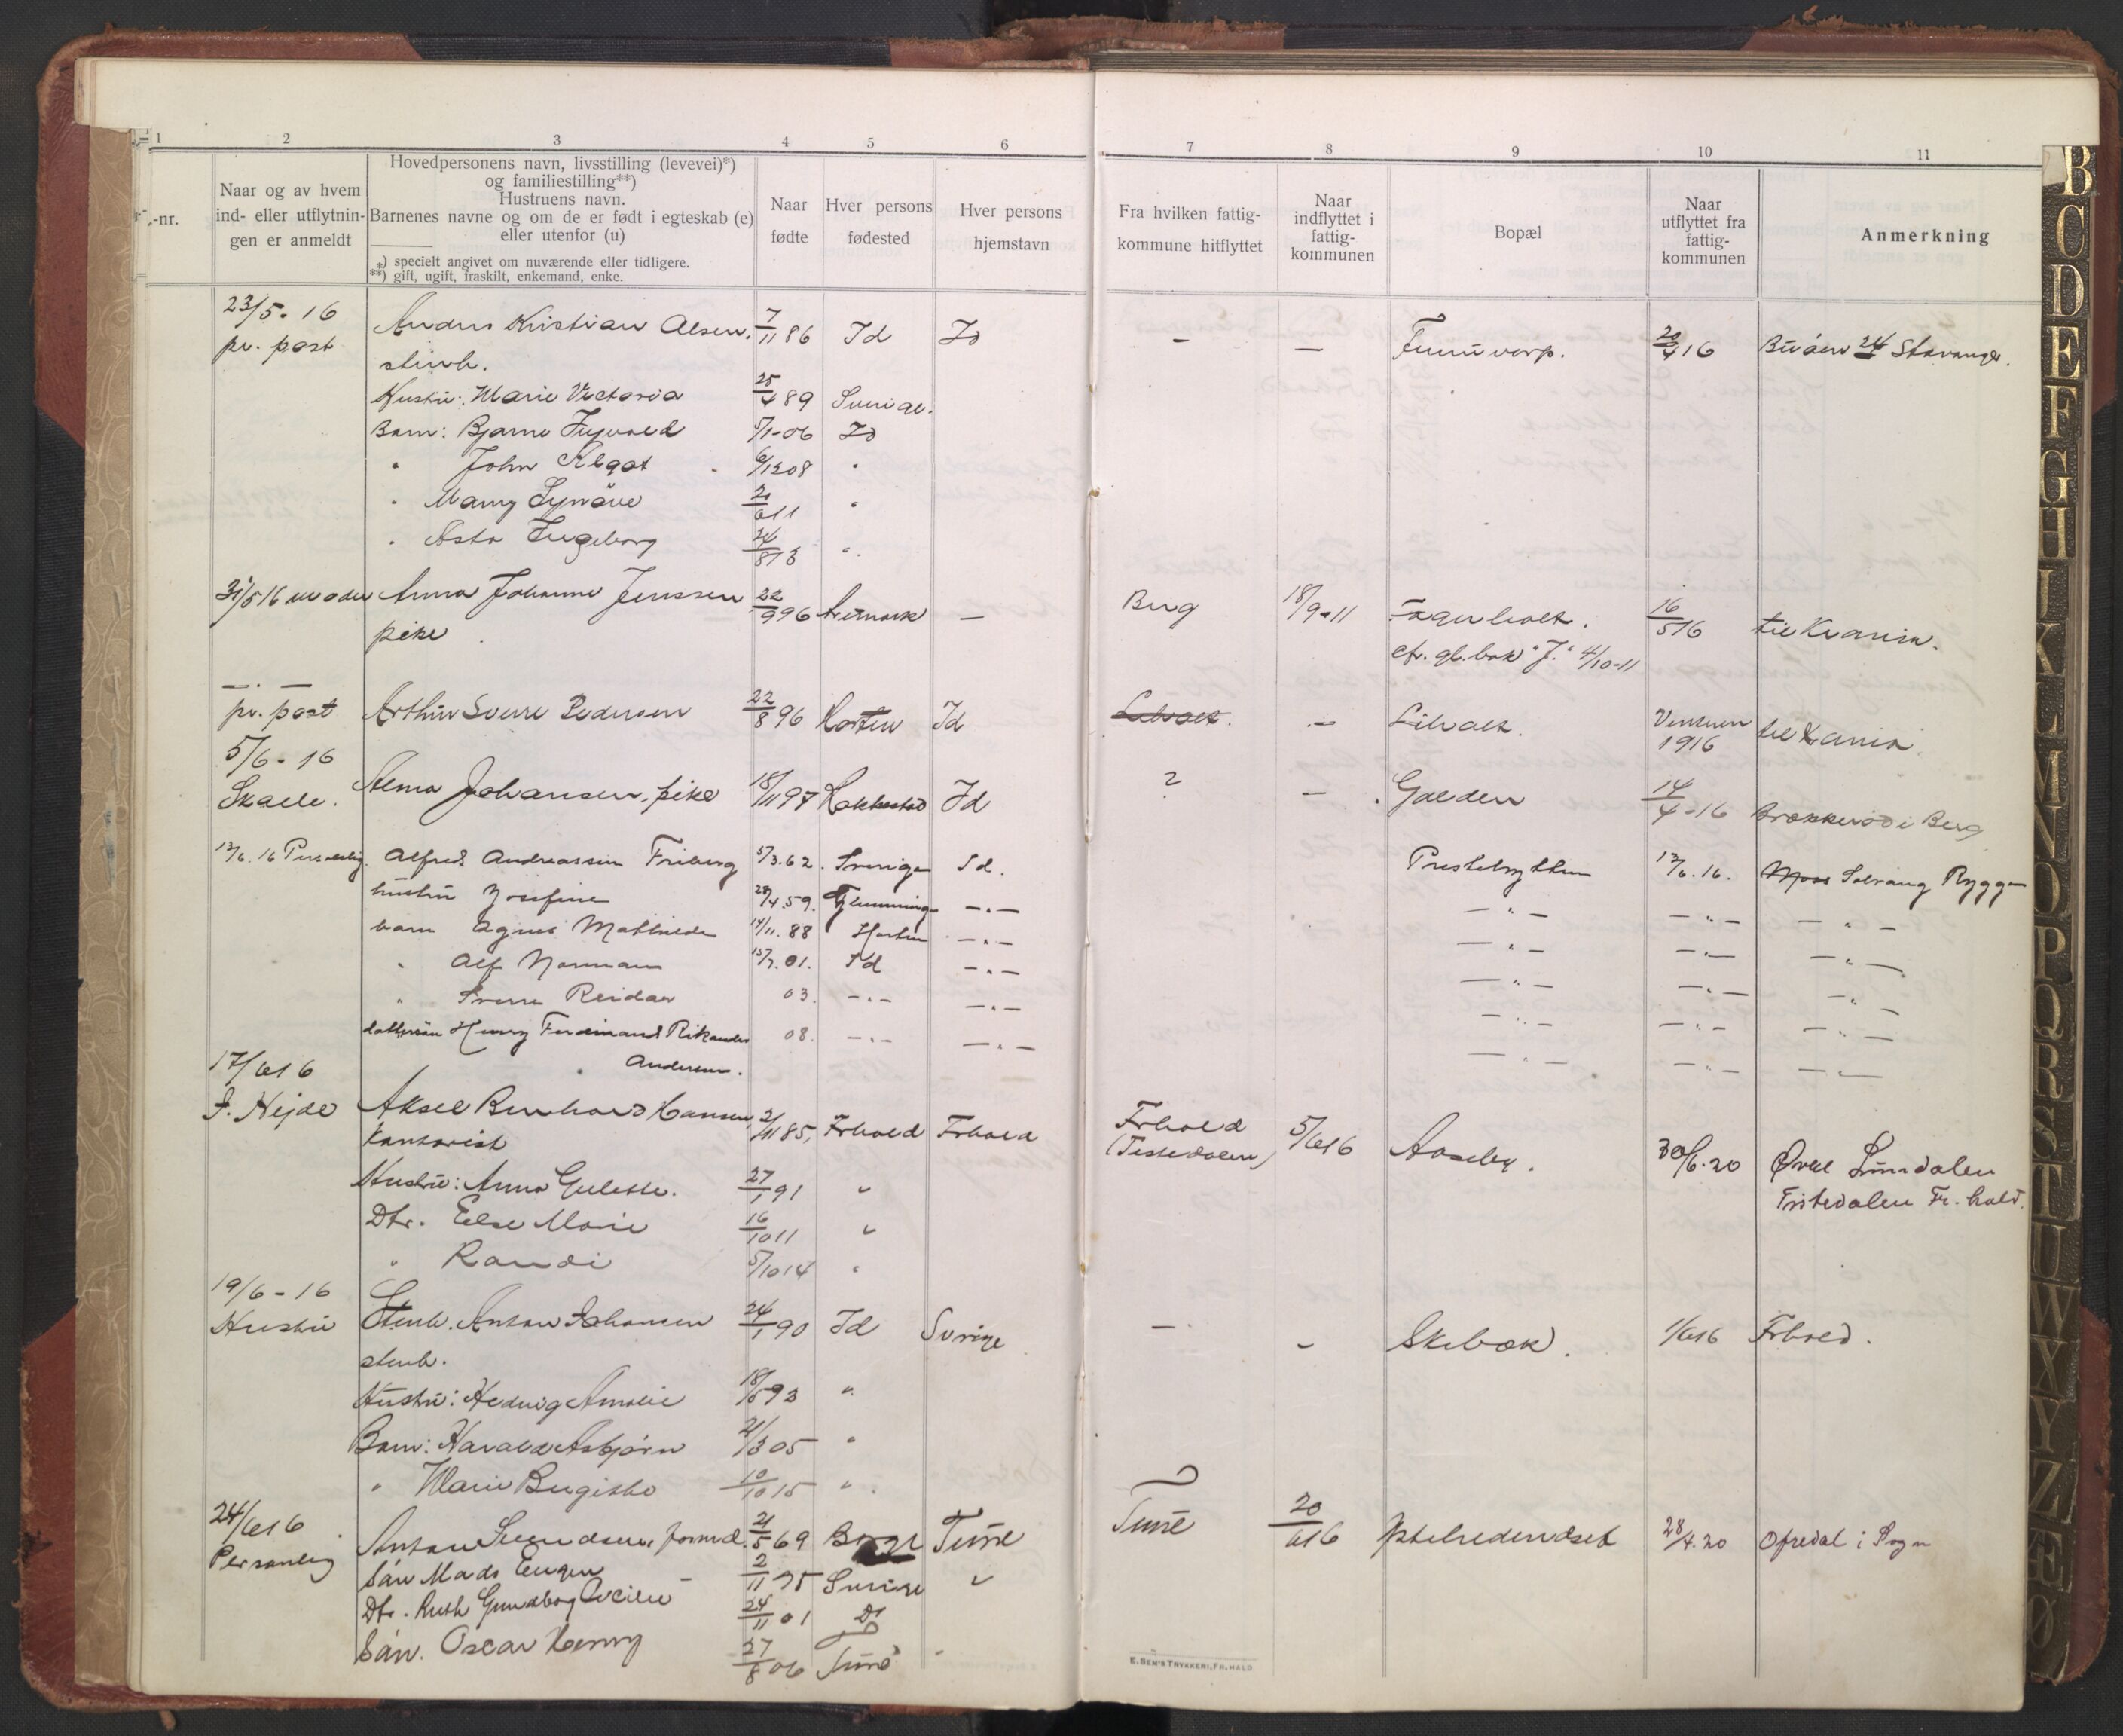 1 2 3 4 5 6 7 8 9 10 11
-nr.
Naar og av hvem
ind- eller utflytnin-
gen er anmeldt
Hovedpersonens navn, livsstilling (levevei)*)
og familiestilling**)
Hustruens navn.
Barnenes navne og om de er født i egteskab (e)
eller utenfor (u)
*) specielt angivet om nuværende eller tidligere.
**) gift, ugift, fraskilt, enkemand, enke.
Naar
fødte
Hver persons
fødested
Hver persons
hjemstavn
Fra hvilken fattig-
kommune hitflyttet
Naar
indflyttet i
fattig-
kommunen
Bopæl
Naar
utflyttet fra
fattig-
kommunen
Anmerkning
23/5. 16 Anders Kristian Olsen. 7/11 86 Id Id - — 20/4 16 Stavanger.
pr. post stenh.
Hustru: Marie Victoria 25/4 89 Sverige.
Barn: Bjarne 5/1-06 Id
" John 6/12 08 "
" Synöve 2/6 11 "
" Asta Ingeborg 24/8 13 "
31/5 16 Anna Johanne Jenssen 22/9 96 Aremark — Berg 18/9-11 Fagerholt. 16/5 16 til Krania.
pike cfr. gl. bok "J." 4/10-11
— " —
pr. post Arthur Sverre Pedersen 22/8 96 Horten Id - Liholt. 1916 til Krania.
5/6 - 16
Skaele. Alma Johansen, pike 18/11 97 Rakkestad Id ? — Galden 14/4-16 i Berg
13/6. 16 Personlig. Alfred Andreassen Friberg 5/3. 62. Sverige Id. Prestebytten 13/6. 16. Moss Solvang Rygge
hustru Josefine 28/4. 59. Glemminge — " — — " — — " — — " —
barn Agnes Mathilde 14/11. 88 Horten — " — — " — — " — — " —
" Alf Norman 15/7. 01. Id — " — — " — — " — — " —
" Sverre Reidar 03. — " — — " — — " — — " — — " —
dattersøn Henry Ferdinand Rikander 08. — " — — " — — " — — " — — " —
Andersen.
17/6 16
J. Hejde Aksel Bernhard Hansen, 2/11 85, Frhald Frhald Frhald 5/6 16 Aaseby. 30/6. 20 Øvre Lundalen
Kontorist (Tistedalen) Tistedalen Fr. hald.
Hustru: Anna 27/1 91 "
Dtr. Else Marie 16/10 11 "
" Randi 5/10 14 "
19/6 - 16
Hustru Stenh. Anton Johansen 24/1 90 Id Sverige — - Skibæk. 1/6 16 Frhald.
stenh.
Hustru: Hedvig Amalie 18/5 93 "
Barn: Harald Asbjørn 21/3 05 "
" Marie 10/10 15 "
24/6 16
Personlig Anton Svendsen, formd. 21/5 69 Tune Tune 20/6 16 28/4. 20 Ofredal i Sogn
Søn Mads Eugen 2/11 95 Sverige "
Dtr. Ruth 24/11 01 Do
Søn. Oscar Henry 27/8 06 Tune "
E. SEM'S TRYKKERI, FR.HALD
B
C
D
E
F
G
H
I
K
L
M
N
O
P
Q
R
S
T
U
W
X
Y
Z
Æ
Ø